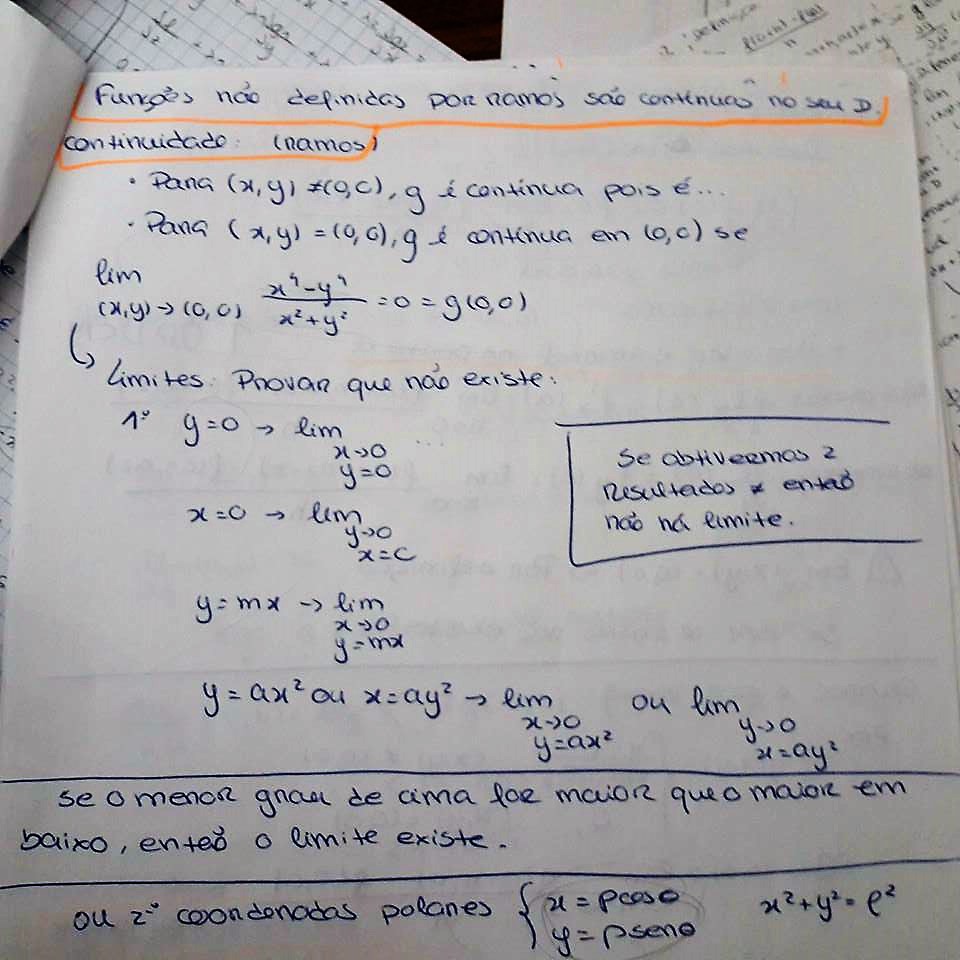 Funções não definidas por ramos são contínuas no seu D.
continuidade: (ramos)
· Para (x,y) ≠ (0,0), g é contínua pois é...
· Para (x,y) = (0,0), g é contínua em (0,0) se
lim
(x,y) → (0,0) x⁴-y⁴ / x²+y² = 0 = g(0,0)
↳ Limites: Provar que não existe:
1º y=0 → lim ...
x→0
y=0
x=0 → lim
y→0
x=0
se obtivermos 2
resultados ≠ então
não há limite.
y=mx → lim
x→0
y=mx
y=ax² ou x=ay² → lim ou lim
x→0 y→0
y=ax² x=ay²
se o menor grau de cima for maior que o maior em
baixo, então o limite existe.
ou 2º coordenadas polares { x = ρcosθ x²+y²=ρ²
y = ρsenθ